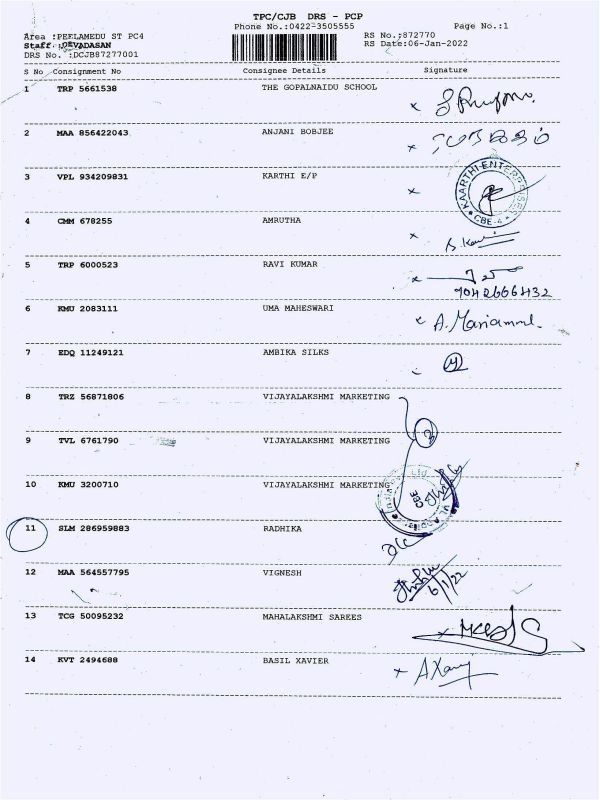 TPC/CJB DRS - PCP
Phone No.:0422-3505555 Page No.:1
Area :PEELAMEDU ST PC4 RS No.:872770
Staff :DEVADASAN RS Date:06-Jan-2022
DRS No. :DCJB87277001
S No Consignment No Consignee Details Signature
1 TRP 5661538 THE GOPALNAIDU SCHOOL
2 MAA 856422043 ANJANI BOBJEE
3 VPL 934209831 KARTHI E/P
KAARTHI ENTERPRISES
CBE-4
4 CMM 678255 AMRUTHA
5 TRP 6000523 RAVI KUMAR
6 KMU 2083111 UMA MAHESWARI
A. Mariammal.
7 EDQ 11249121 AMBIKA SILKS
8 TRZ 56871806 VIJAYALAKSHMI MARKETING
9 TVL 6761790 VIJAYALAKSHMI MARKETING
3
10 KMU 3200710 VIJAYALAKSHMI MARKETING
CBE
11 SLM 286959883 RADHIKA
12 MAA 564557795 VIGNESH
6/1/22
13 TCG 50095232 MAHALAKSHMI SAREES
14 KVT 2494688 BASIL XAVIER